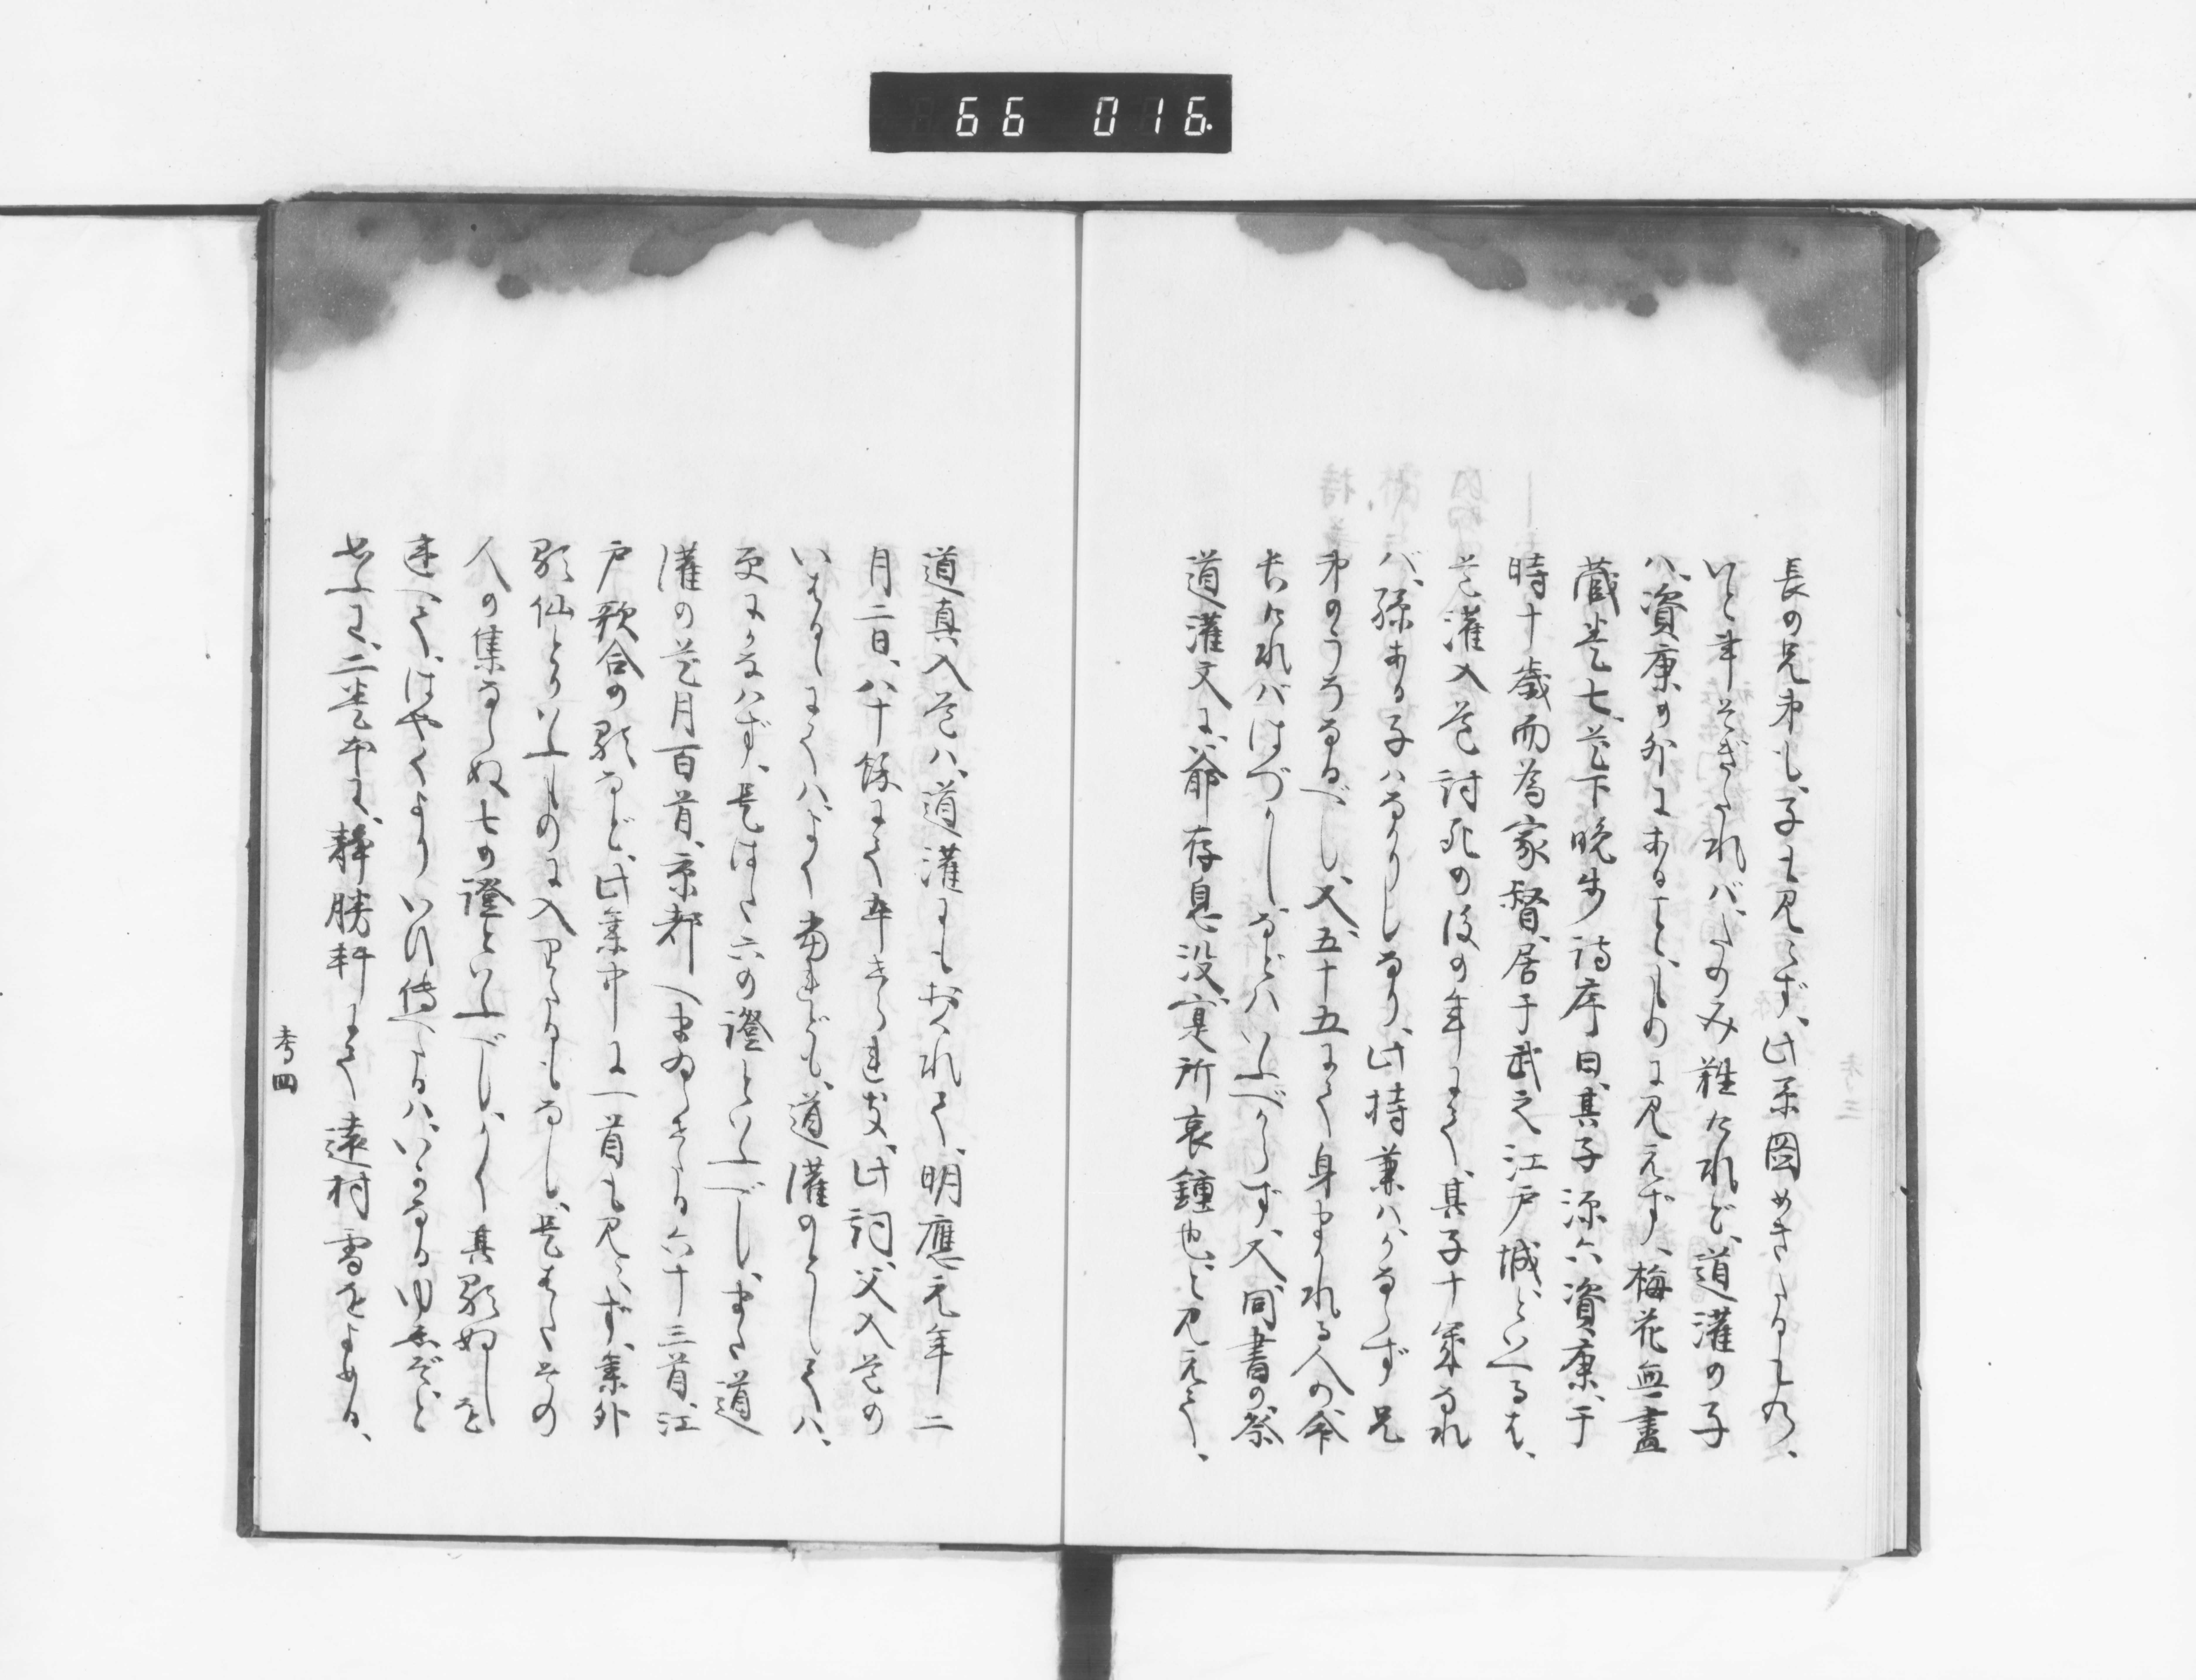 66 016
長の兄弟も、子も見えず、此系図めきたるもの、
いと年そぎたれバ、たのみ難けれど、道灌の子
ハ、資康の外にあること、ものに見えず、梅花無盡
蔵巻七、花下晩歩詩序曰、其子源六資康、于
時十歳而為家督、居于武之江戸城、といへるは、
道灌入道討死の後の年にて、其子十歳なれ
バ、孫ある子ハなかりしなり、此持兼ハかならず兄
弟のうちなるべし、又五十五にて身まかれる人の命
長けれバはづかしなどハいふべからず、又、同書の祭
道灌文に、爺存息没、寔所哀鍾也、と見えて、
道真入道ハ、道灌にもおくれて、明應元年二
月二日、八十餘にて卒せられき、此詞、父入道の
いはるゝにてハ、よく當れども、道灌のとしてハ、
更にかなハず、是はた六の證といふべし、また道
灌の花月百首、京都へまゐらせたる六十三首、江
戸歌合の歌など、此集中に一首も見えず、集外
歌仙とかいふものに入りたるもなし、是もまたその
人の集ならぬ七の證といふべし、かく真歌ぬしを
違へて、はやくよりいひ傳へたるハ、いかなるゆゑぞ、と
せふに、二巻本に、静勝軒にて遠村雪をよめる、
考四